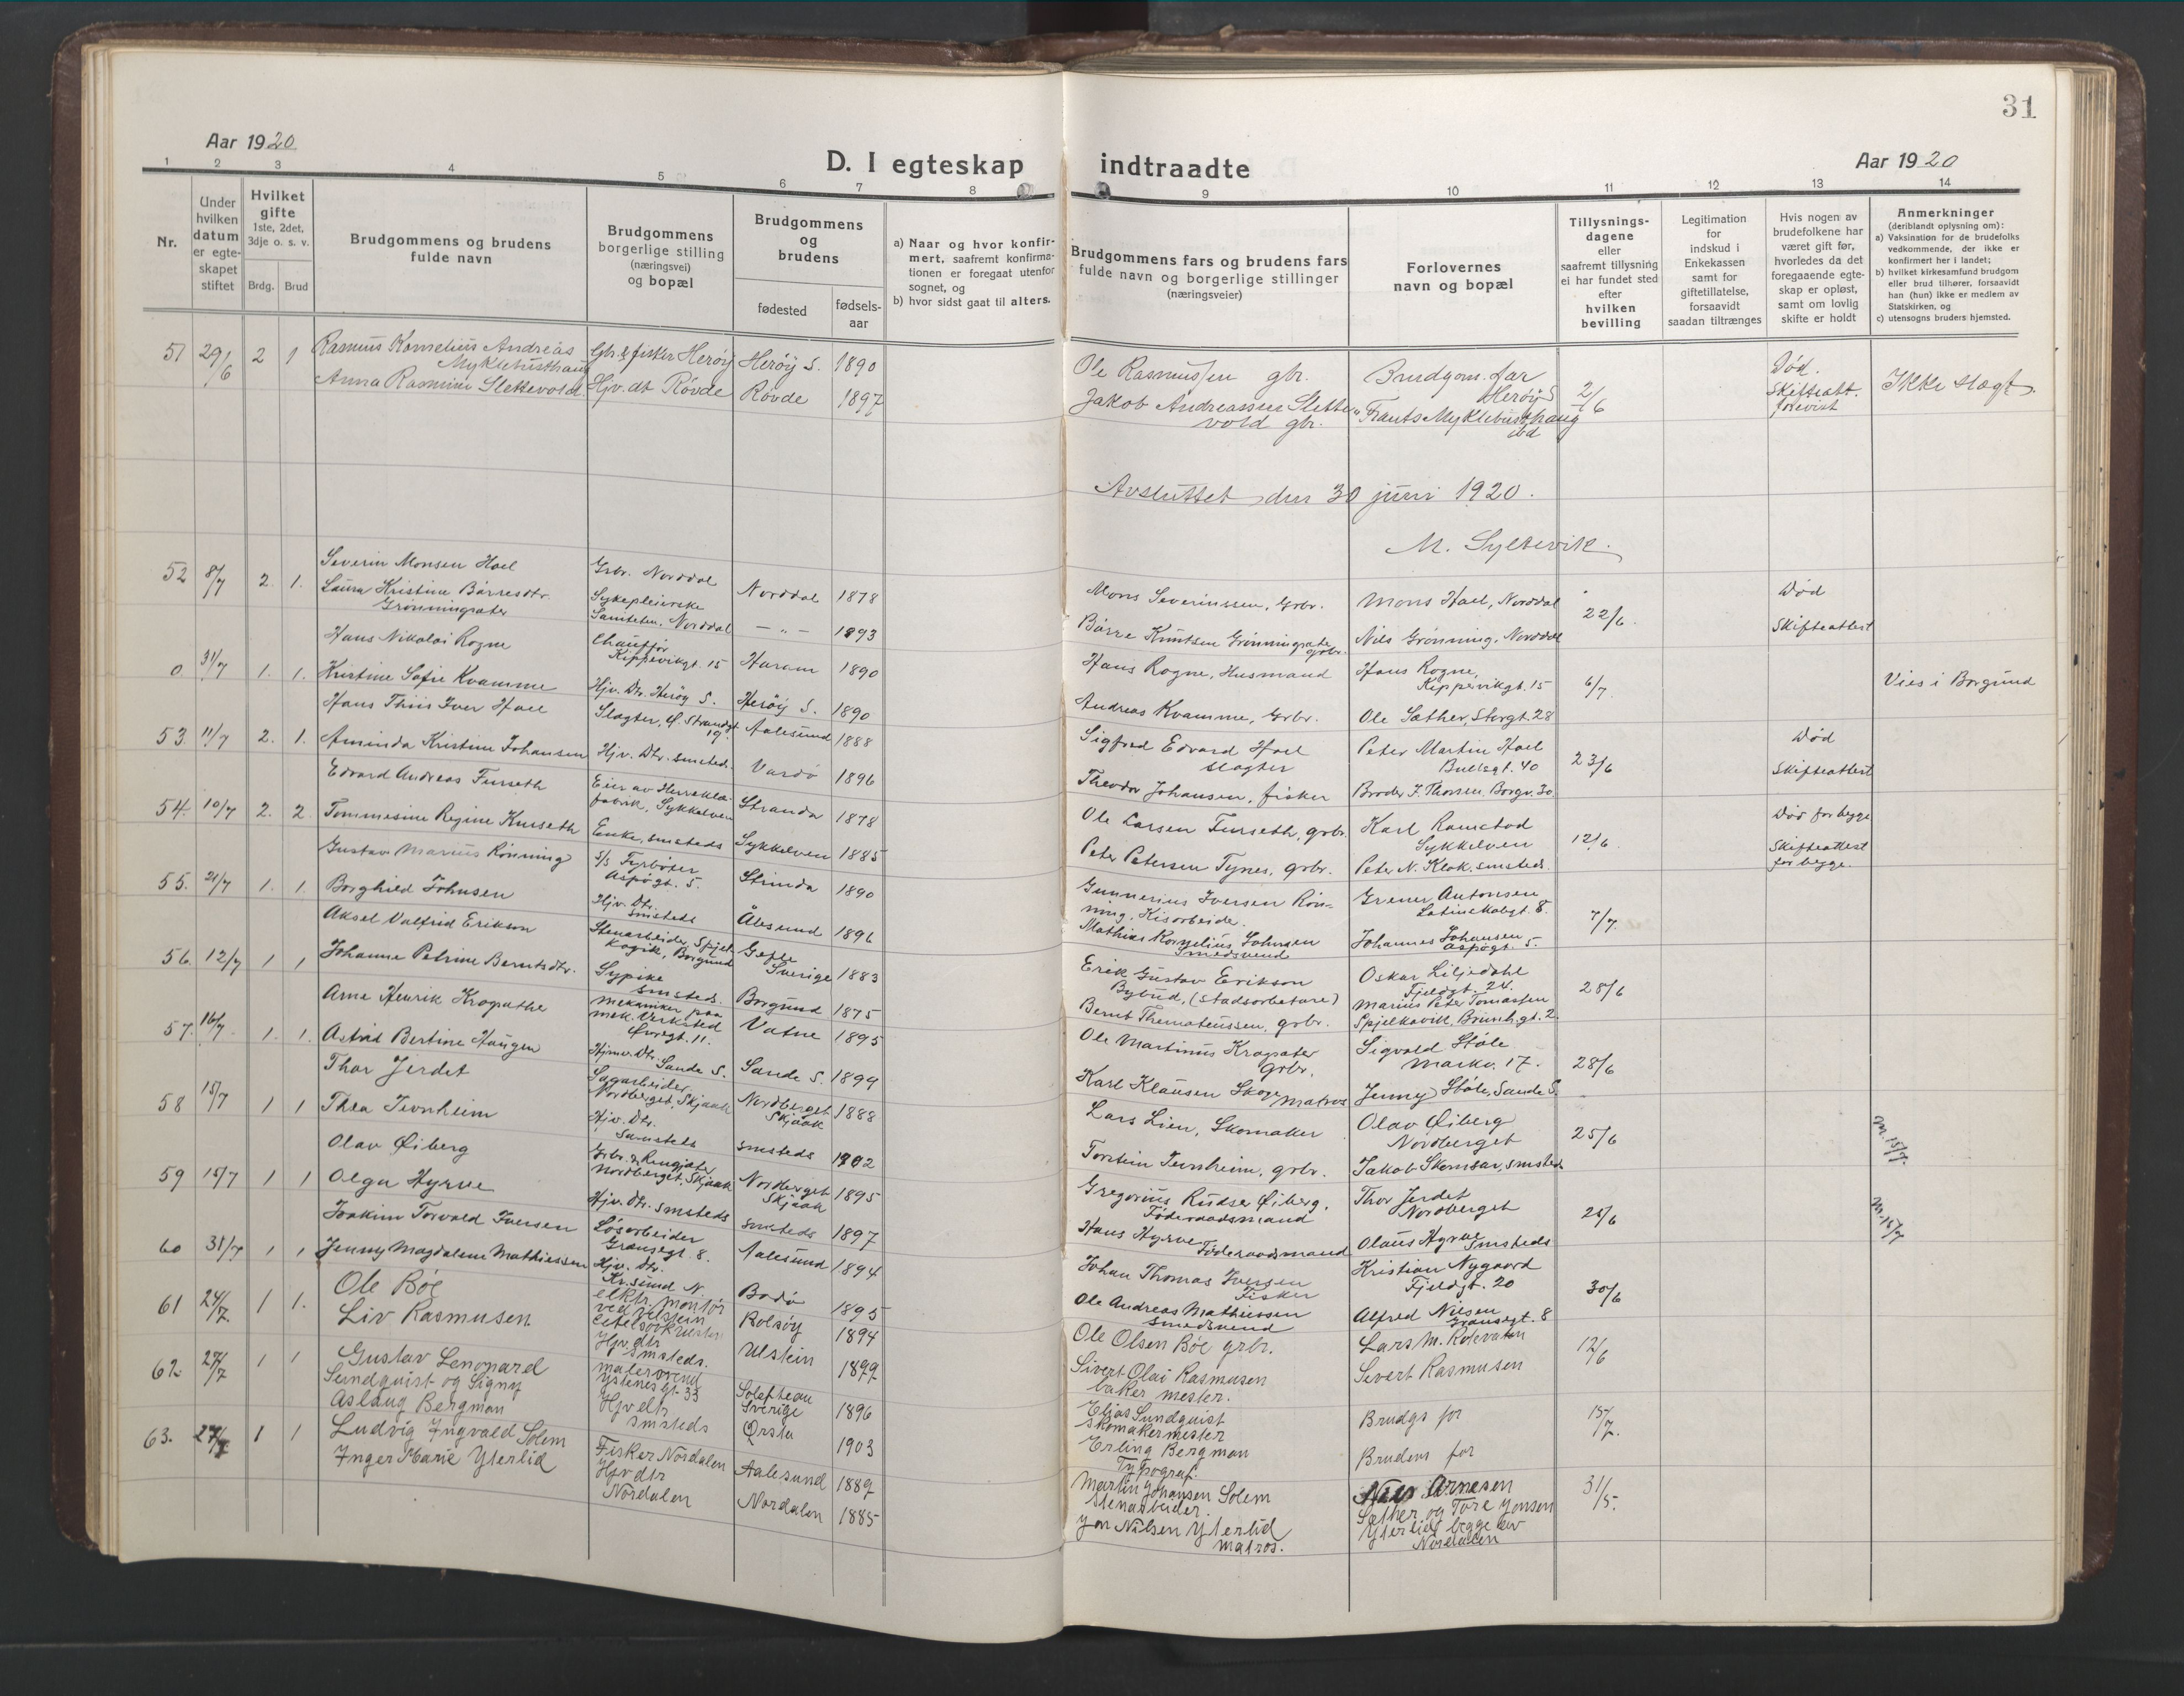 31
Aar 1920
D. I egteskap indtraadte
Aar 1920
1 2 3 4 5 6 7 8 9 10 11 12 13 14
Nr.
Under hvilken datum er egteskapet stiftet
Hvilket gifte
1ste, 2det, 3dje o. s. v.
Brdg. Brud
Brudgommens og brudens
fulde navn
Brudgommens
borgerlige stilling
(næringsvei)
og bopæl
Brudgommens
og
brudens
fødested
fødsels-
aar
a) Naar og hvor konfir-
mert, saafremt konfirma-
tionen er foregaat utenfor
sognet, og
b) hvor sidst gaat til alters.
Brudgommens fars og brudens fars
fulde navn og borgerlige stillinger
(næringsveier)
Forlovernes
navn og bopæl
Tillysnings-
dagene
eller
saafremt tillysning
ei har fundet sted
efter
hvilken
bevilling
Legitimation
for
indskud i
Enkekassen
samt for
giftetillatelse,
forsaavidt
saadan tiltrænges
Hvis nogen av
brudefolkene har
været gift før,
hvorledes da det
foregaaende egte-
skap er opløst,
samt om lovlig
skifte er holdt
Anmerkninger
(deriblandt oplysning om):
a) Vaksination for de brudefolks
vedkommende, der ikke er
konfirmert her i landet;
b) hvilket kirkesamfund brudgom
eller brud tilhører, forsaavidt
han (hun) ikke er medlem av
Statskirken, og
c) utensogns bruders hjemsted.
51 29/6 2 1 Rasmus Kornelius Andreas Myklebusthaug Gbr. & fisker Herøy Herøy S. 1890 Ole Rasmussen gbr. Brudgom. far Herøy S 2/6 Død. Skifteatt. forevist Ikke slegt.
Anna Rasmine Slettevold Hjv. dt Røvde Røvde 1897 Jakob Andreassen Slettevold gbr. Frants Myklebusthaug ibd
Avsluttet den 30 juni 1920.
M. Syltevik.
52 8/7 2. 1. Severin Monsen Hoel Grbr. Norddal Norddal 1878 Mons Severinssen, Grbr. Mons Hoel, Norddal 22/6. Død
Laura Kristine Bårresdtr. Grønningsæter Sykepleierske Samsteten, Norddal — " — 1893 Bårre Knutsen Grønningsæter grbr. Nils Grønning, Norddal Skifteattest
0. 31/7 1. 1. Hans Nikolai Rogne Chauffør Kippervikgt. 15 Haram 1890 Hans Rogne, Husmand Hans Rogne, Kippervikgt. 15 6/7. Vies i Borgund
Kristine Sofie Kvamme Hjv. Dtr. Herøy S. Herøy S. 1890 Andreas Kvamme, Grbr. Ole Sæther, Storgt. 28
53. 11/7 2. 1. Hans Thiis Iver Hoel Slagter, Ø. Strandgt 19. Aalesund 1888 Sigfred Edvard Hoel slagter Peter Martin Hoel Bullsgt. 40 23/6 Død
Aminda Kristine Johansen Hjv. Dtr. smsteds. Vardø 1896 Theodor Johansen, fisker Broder J. Thorsen, Borgv. 30 Skifteattest
54. 10/7 2. 2. Edvard Andreas Furseth Eier av Herreklæ-fabrik, Sykkelven Stranda 1878 Ole Larsen Furseth, grbr. Karl Ramstad Sykkelven 12/6. Død for begge
Tommesine Regine Knuseth Enke, smsteds Sykkelven 1885 Peter Petersen Tynes, grbr. Peter N. Klok, smsteds. Skifteattest for begge.
55. 21/7 1. 1. Gustav Marius Rønning S/S Fyrbøter Aspøgt. 5. Strinda 1890 Gunnerius Iversen Rønning, Kisarbeider Grener Antonsen Latinskolegt. 8. 7/7.
Borghild Johnsen Hjv. Dtr. smsteds Ålesund 1896 Mathias Kornelius Johnsen Smedsvend Johannes Johansen Aspøgt. 5.
56. 12/7 1 1 Aksel Valfrid Erikson Stenarbeider, Spjelkavik, Borgund Gefle Sverige 1883 Erik Gustav Erikson Bybud, (stadsarbetare) Oskar Liljedahl Fjeldgt. 24. 28/6
Johanne Petrine Berntsdtr. Sypike smsteds. Borgund 1875 Bernt Themateussen, grbr. Marius Peter Tomassen Spjelkavik, Brunh.gt. 2.
57. 16/7 1. 1. Arne Henrik Krogsæthe Mekaniker paa mek. Verksted Øvregt. 11. Vatne 1895 Ole Martinus Krogsæter grbr. Sigvald Støle Markv. 17. 28/6
Astrid Bertine Haugen Hjmv. Dtr. Sande S. Sande S. 1899 Karl Klausen Skoge Matros Jenny Støle, Sande S.
58 15/7 1 1 Thor Jerdet Sagarbeider Nordberget, Skjaak Nordberget Skjåak 1888 Lars Lien, Skomaker Olav Øiberg Nordberget 25/6 M. 15/7.
Thea Jevnheim Hjv. Dtr. Samsteds smsteds 1902 Torstein Jevnheim, grbr. Jakob Skomsar, smsteds
59 15/7 1 1 Olav Øiberg Grbr. & Rengjæter Nordberget, Skjaak Nordberget Skjaak 1895 Gregorius Rudse Øiberg, Føderaadsmand Thor Jerdet Nordberget 25/6 M. 15/7
Olga Hyrve Hjv. Dtr. smsteds smsteds 1897 Hans Hyrve Føderaadsmand Olaus Hyrve smsteds
60 31/7 1 1 Joakim Torvald Iversen Løsarbeider Grensegt. 8. Aalesund 1894 Johan Thomas Iversen Fisker Kristian Nygaard Fjeldgt. 20 30/6
Jenny Magdalene Mathiessen Hjv. Dtr. Kr.sund N. Bodø 1895 Ole Andreas Mathiessen Smedsvend Alfred Nilsen Grensegt. 8
61 24/7. 1 1. Ole Bøe elktr. montør ved Ulstein Rolsøy 1894 Ole Olsen Bøe grbr. Lars M. 12/6
Liv Rasmusen Hjv. dtr smsteds. Ulstein 1899 Sivert Olai Rasmusen baker mester. Severt Rasmusen
62. 27/7 1 1 Gustav Lenopard Sundquist og Signy malersvend Ystenesgt 33 Solefteau Sverige 1896 Elias Sundquist skomakermester Brudgs far 15/7.
Aslaug Bergman Hjv dtr smsteds Ørsta 1903 Erling Bergman Typograf. Brudens far
63. 27/7 1 1 Ludvig Ingvald Solem Fisker Nordalen Aalesund 1889 Martin Johansen Solem Stenarbeider. Nils Arnesen 31/5.
Inger Marie Yterlid Hjv dtr Nordalen Nordalen 1885 Jon Nilsen Yterlid matros. Sæther og Tore Jonsen Yterlid begge av Nordalen